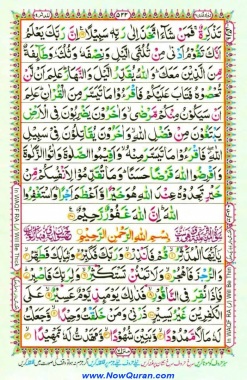 تَذْكِرَةٌ ۚ فَمَنْ شَآءَ اتَّخَذَ اِلٰى رَبِّهٖ سَبِيْلًا ۝ اِنَّ رَبَّكَ يَعْلَمُ
اَنَّكَ تَقُوْمُ اَدْنٰى مِنْ ثُلُثَىِ الَّيْلِ وَنِصْفَهٗ وَثُلُثَهٗ وَطَآئِفَةٌ
مِّنَ الَّذِيْنَ مَعَكَ ؕ وَاللّٰهُ يُقَدِّرُ الَّيْلَ وَالنَّهَارَ ؕ عَلِمَ اَنْ لَّنْ
تُحْصُوْهُ فَتَابَ عَلَيْكُمْ فَاقْرَءُوْا مَا تَيَسَّرَ مِنَ الْقُرْاٰنِ ؕ عَلِمَ
اَنْ سَيَكُوْنُ مِنْكُمْ مَّرْضٰى ۙ وَاٰخَرُوْنَ يَضْرِبُوْنَ فِى الْاَرْضِ
يَبْتَغُوْنَ مِنْ فَضْلِ اللّٰهِ ۙ وَاٰخَرُوْنَ يُقَاتِلُوْنَ فِىْ سَبِيْلِ
اللّٰهِ ۖ فَاقْرَءُوْا مَا تَيَسَّرَ مِنْهُ ۙ وَاَقِيْمُوا الصَّلٰوةَ وَاٰتُوا الزَّكٰوةَ
وَاَقْرِضُوا اللّٰهَ قَرْضًا حَسَنًا ؕ وَمَا تُقَدِّمُوْا لِاَنْفُسِكُمْ مِّنْ
خَيْرٍ تَجِدُوْهُ عِنْدَ اللّٰهِ هُوَ خَيْرًا وَّاَعْظَمَ اَجْرًا ؕ وَاسْتَغْفِرُوا
اللّٰهَ ؕ اِنَّ اللّٰهَ غَفُوْرٌ رَّحِيْمٌ ۝
بِسْمِ اللّٰهِ الرَّحْمٰنِ الرَّحِيْمِ
يٰۤاَيُّهَا الْمُدَّثِّرُ ۝ قُمْ فَاَنْذِرْ ۝ وَرَبَّكَ فَكَبِّرْ ۝ وَثِيَابَكَ فَطَهِّرْ ۝
وَالرُّجْزَ فَاهْجُرْ ۝ وَلَا تَمْنُنْ تَسْتَكْثِرُ ۝ وَلِرَبِّكَ فَاصْبِرْ ۝
فَاِذَا نُقِرَ فِى النَّاقُوْرِ ۝ فَذٰلِكَ يَوْمَئِذٍ يَّوْمٌ عَسِيْرٌ ۝
عَلَى الْكٰفِرِيْنَ غَيْرُ يَسِيْرٍ ۝ ذَرْنِىْ وَمَنْ خَلَقْتُ وَحِيْدًا ۝ وَّجَعَلْتُ
لَهٗ مَالًا مَّمْدُوْدًا ۝ وَّبَنِيْنَ شُهُوْدًا ۝ وَّمَهَّدْتُّ لَهٗ تَمْهِيْدًا ۝
www.NowQuran.com